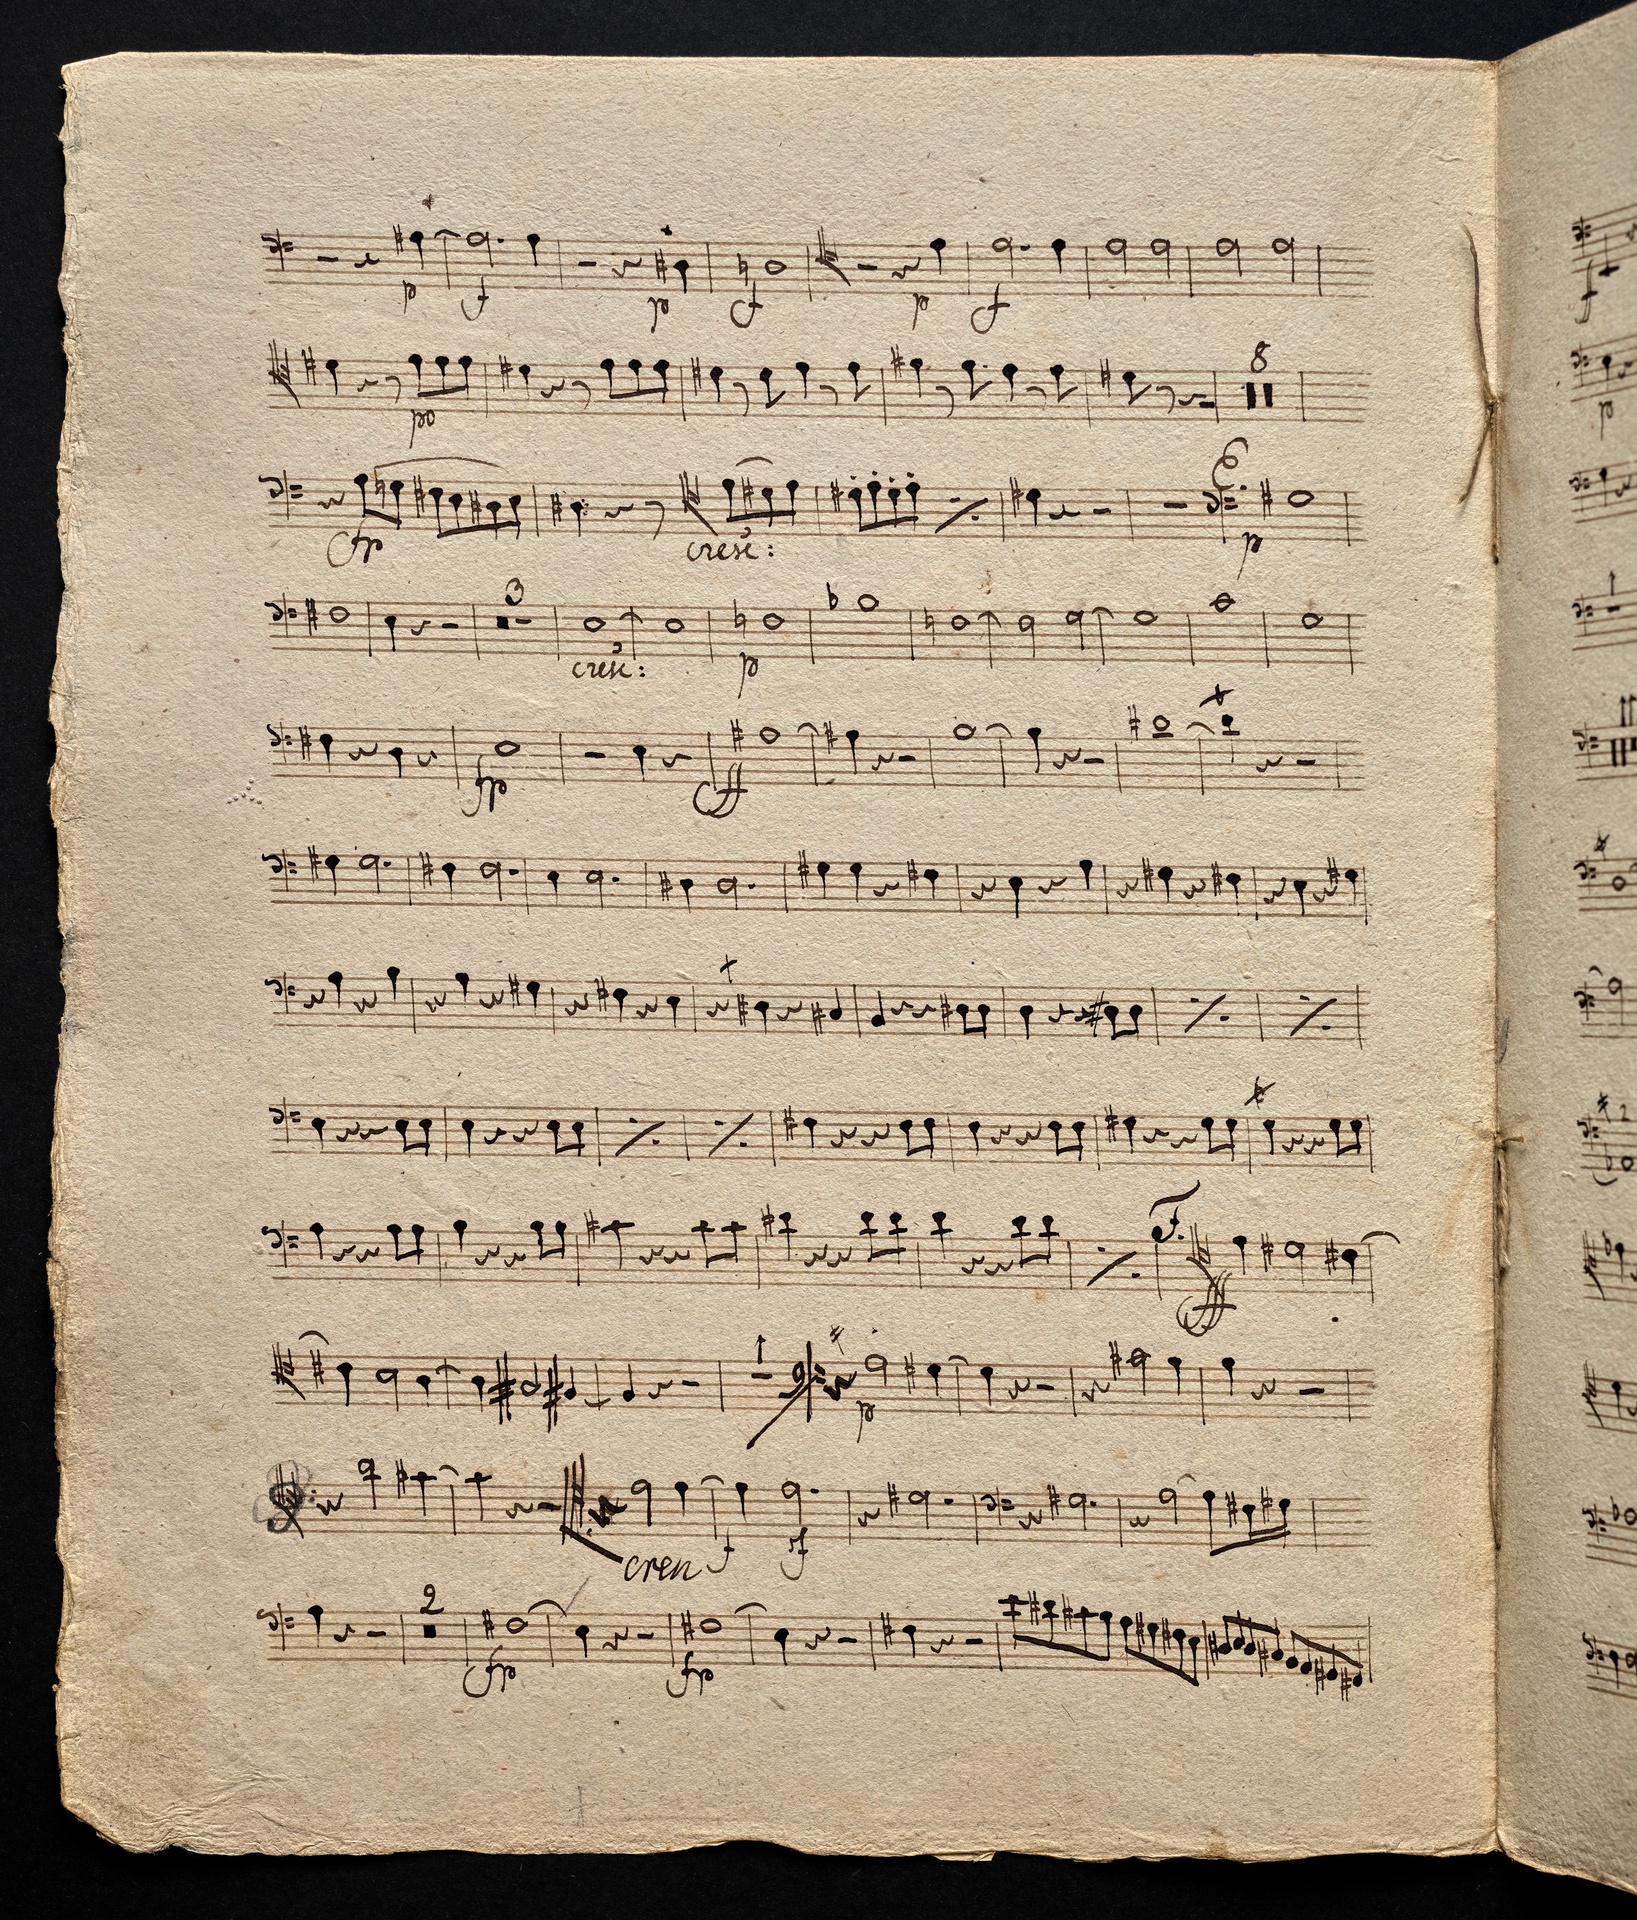 p f p f p f
8
po
fp cresc: E p
3
cresc: p
fp ff
F.
ff
1
p
cren f sf
2
fp fp